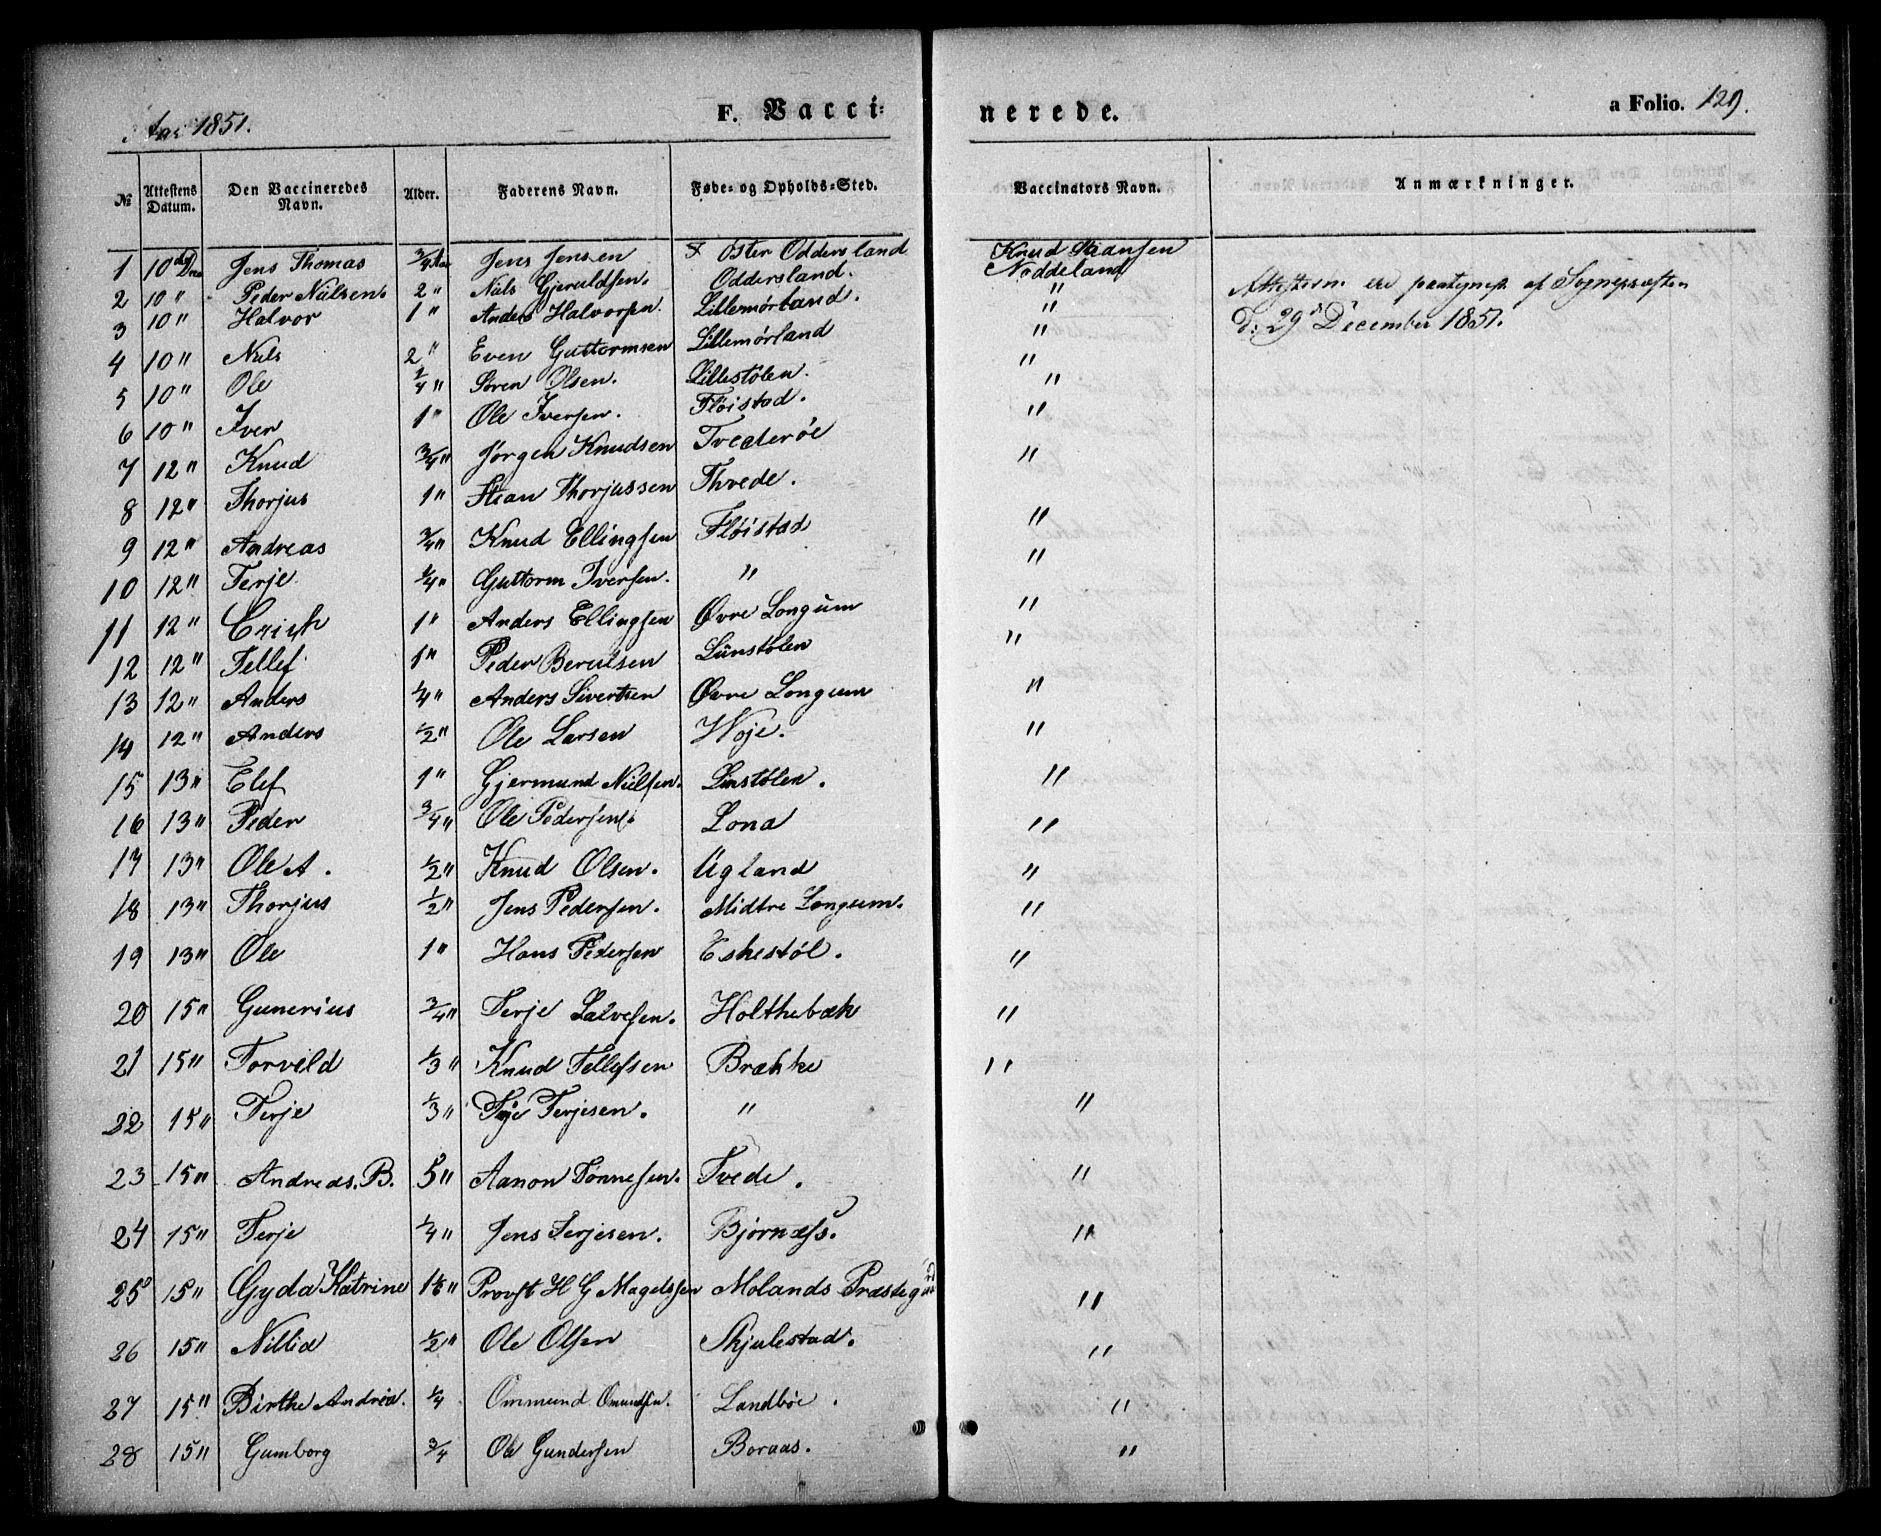 Aar 1851.
F. Vacci-
nerede.
a Folio. 129.
№ Attestens Datum. Den Vaccineredes Navn. Alder. Faderens Navn. Føde- og Opholds-Sted. Vaccinators Navn. Anmærkninger.
1 10de Dec Jens Thomas 3/4 Aar Jens Jensen Øster Oddersland Knud Staansen Noddeland
2 10 " Peder Nielsen. 2 " Niels Gjeruldsen. Oddersland. " Attesterne ere paategnet af Sognepræsten
3 10 " Halvor 1 " Anders Halvorsen. Lillemørland. " D: 29de December 1851.
4 10 " Niels 2 " Even Guttormsen Lillemørland "
5 10 " Ole 1/4 " Søren Olsen. Lillestølen. "
6 10 " Iver 1 " Ole Iversen. Fløistad. "
7 12 " Knud 3/4 " Jørgen Knudsen Tvederøe "
8 12 " Thorjus 1 " Stian Thorjussen Thvede. "
9 12 " Andreas 3/4 " Knud Ellingsen Fløistad "
10 12 " Terje 1/4 " Guttorm Iversen. " "
11 12 " Erich 1 " Anders Ellingsen Øvre Longum "
12 12 " Tellef 1 " Peder Berulsen Linstølen "
13 12 " Anders 1/4 " Anders Sivertsen Øvre Longum "
14 12 " Anders 1/2 " Ole Larsen Woje. "
15 13 " Elef 1 " Gjermund Nielsen. Linstølen. "
16 13 " Peder 3/4 " Ole Pedersen Lona "
17 13 " Ole A. 1/2 " Knud Olsen. Ugland "
18 13 " Thorjus 1/2 " Jens Pedersen. Midtre Longum. "
19 13 " Ole 1 " Hans Pedersen Eskestøl. "
20 15 " Gunerius 3/4 " Terje Salvesen. Holthebæk "
21 15 " Torvild 1/3 " Knud Tellefsen Brække "
22 15 " Terje 1/3 " Terjesen. " "
23 15 " Andreas. B. 5 " Aanon Tønnesen. Tvede. "
24 15 " Terje 1/4 " Jens Terjesen. Bjornæss. "
25 15 " Gyda Katrine 1 " Provst H G Magelssen Molands Præstegd "
26 15 " Nillia 1/2 " Ole Olsen Skjulestad. "
27 15 " Birthe Andrea. 1/4 Ommund Omundsen. Landbøe. "
28 15 " Gumborg 3/4 Ole Gundersen Boraas. "